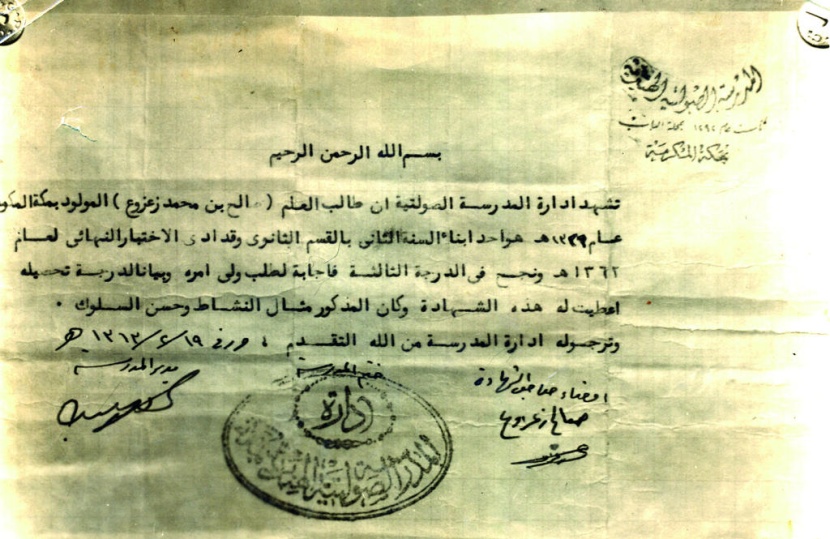 المدرسة الصولتية الهندية
عام ١٢٩٢ بمحلة الباب
بمكة المكرمة
بسم الله الرحمن الرحيم
تشهد ادارة المدرسة الصولتية ان طالب العلم (صالح بن محمد زعزوع) المولود بمكة
عام ١٣٣٩هـ هو احد ابناء السنة الثاني بالقسم الثانوي وقد ادى الاختبار النهائي لعام
١٣٦٢هـ ونجح في الدرجة الثالثة فاجابة لطلب ولى امره وبيانا لدرجة تحصيله
اعطيت له هذه الشهادة وكان المذكور مثال النشاط وحسن السلوك .
وترجو له ادارة المدرسة من الله التقدم ، ١٣٦٣/٢/١٩هـ
امضاء صاحب الشهادة
صالح زعزوع
ختم المدرسة
مدير المدرسة
ادارة
المدرسة الصولتية الهندية